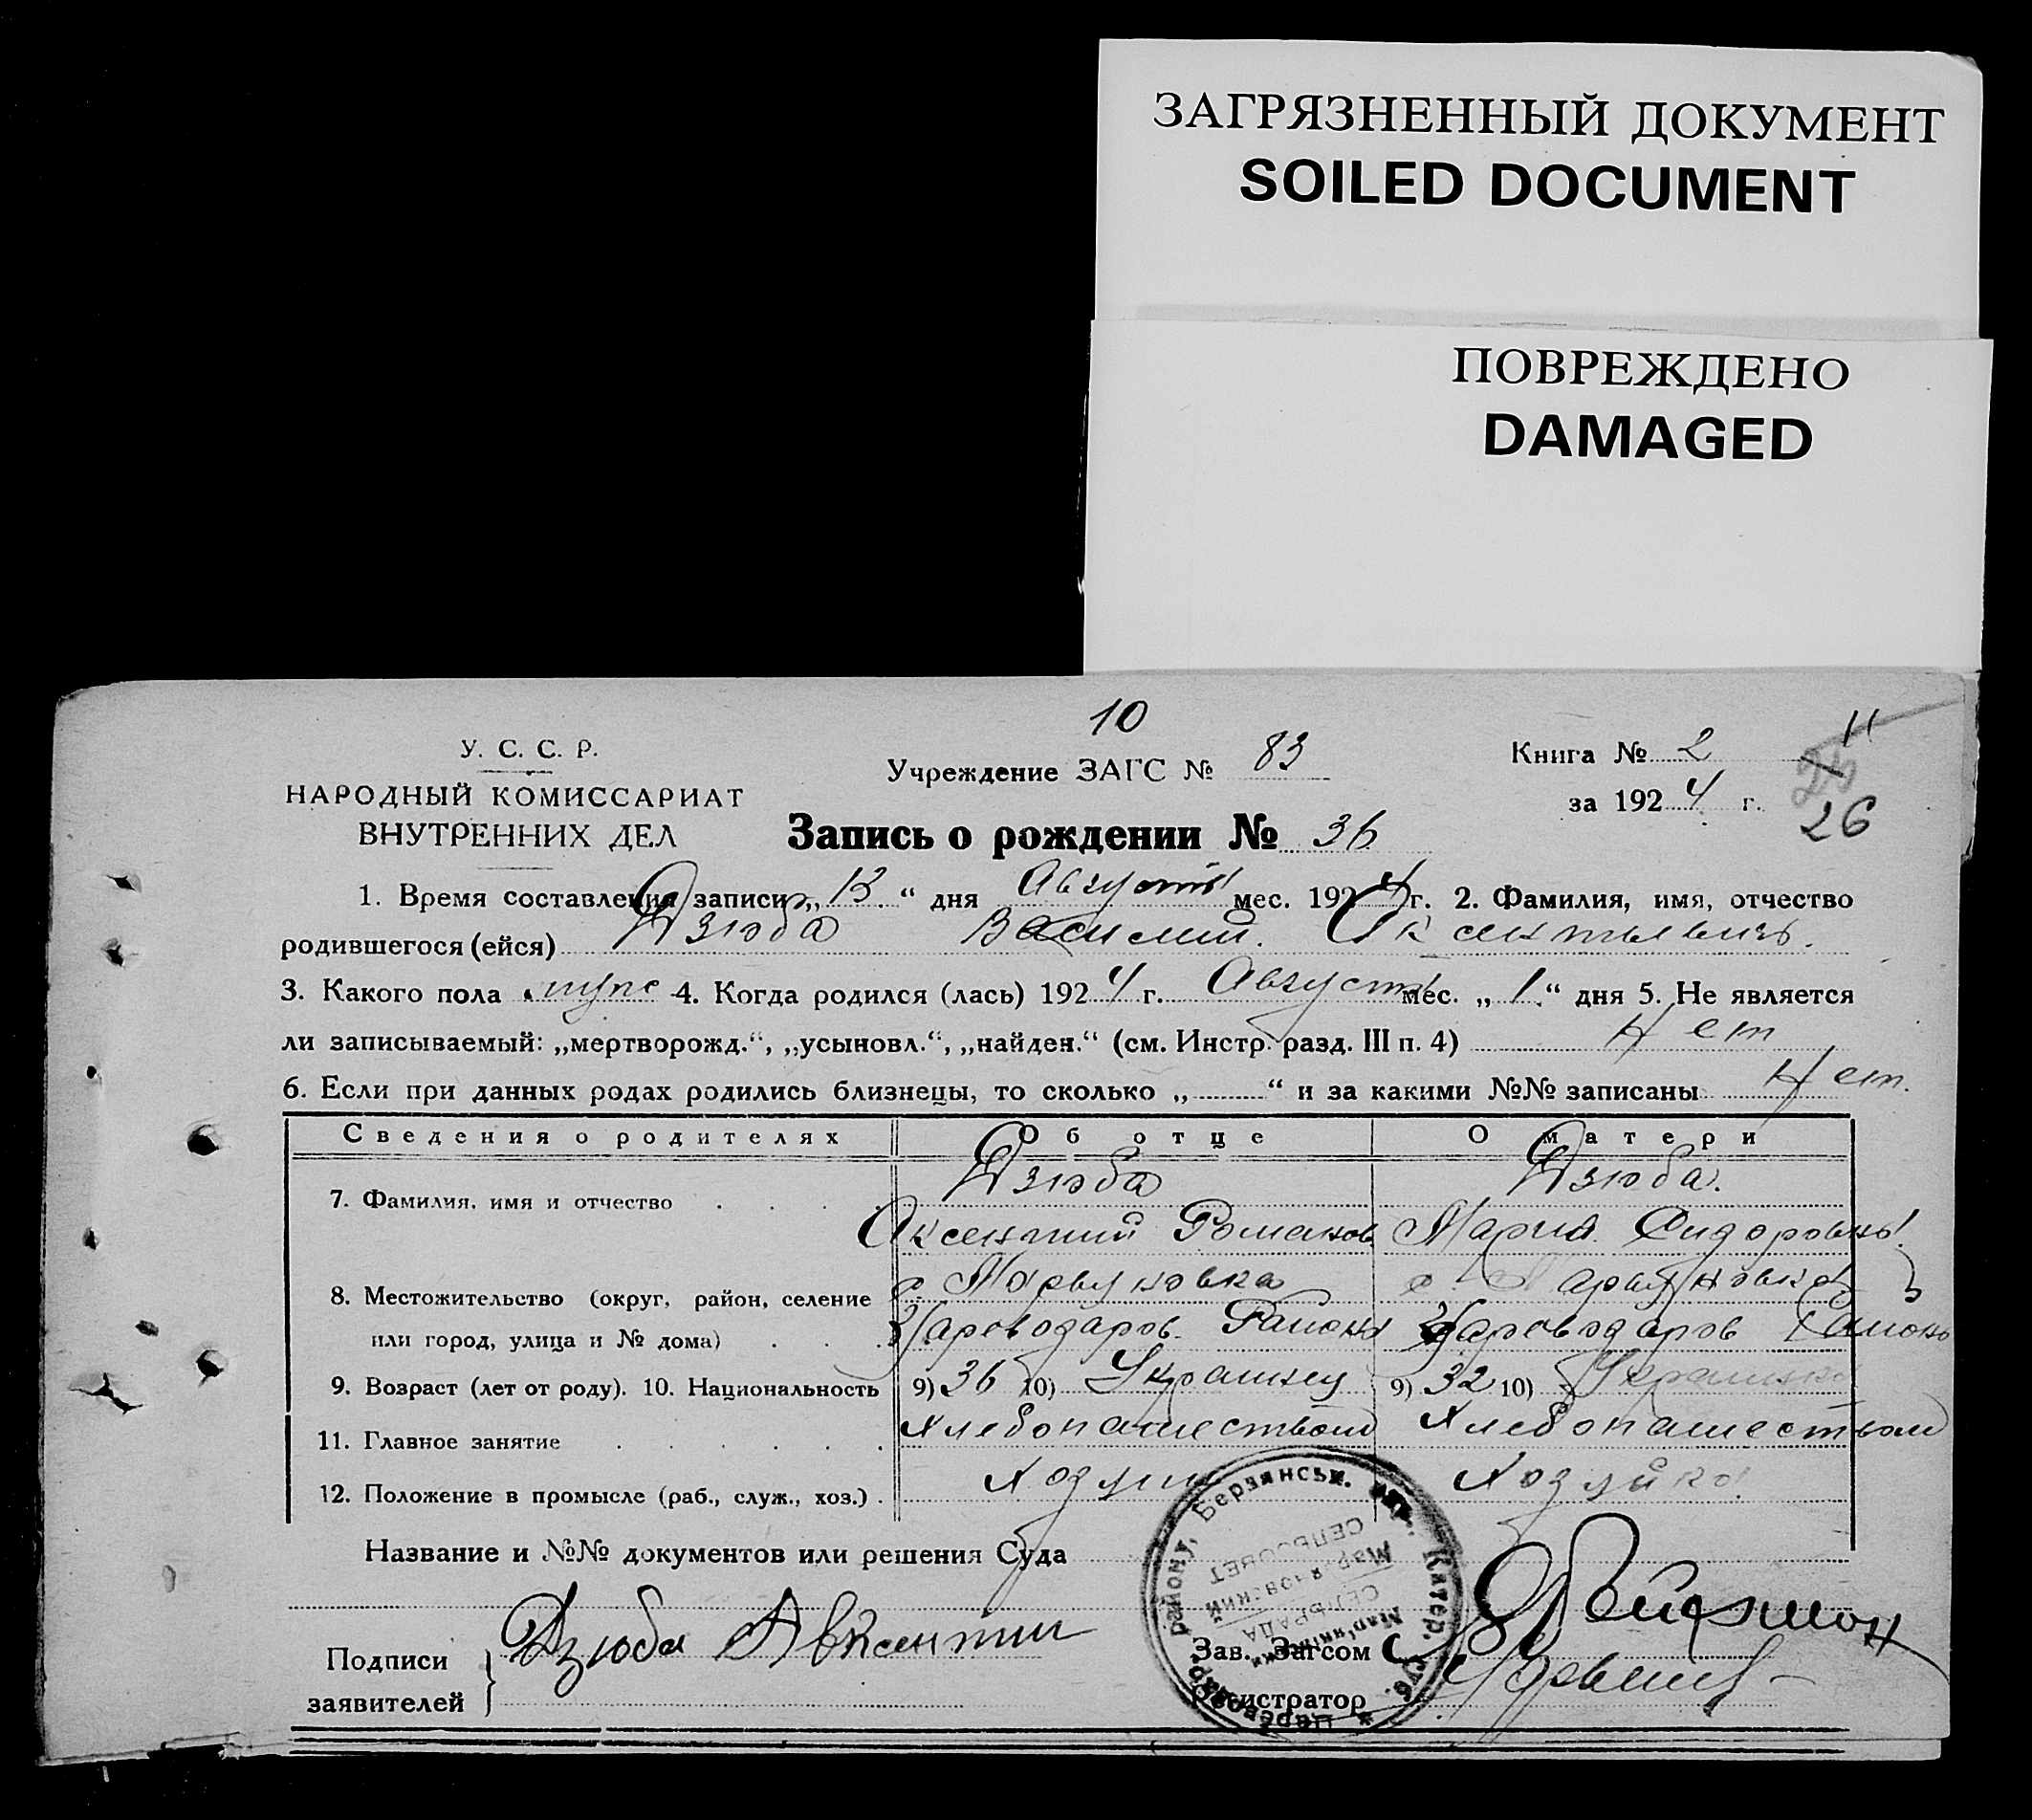 ЗАГРЯЗНЕННЫЙ ДОКУМЕНТ
SOILED DOCUMENT
ПОВРЕЖДЕНО
DAMAGED
10
У. С. С. Р.
НАРОДНЫЙ КОМИССАРИАТ
ВНУТРЕННИХ ДЕЛ
Учреждение ЗАГС № 83
Книга № 2
11
за 1924 г.
26
Запись о рождении № 36
1. Время составления записи „13“ дня Августа мес. 1924 г. 2. Фамилия, имя, отчество
родившегося (ейся) Дзюба Василий. Аксентьевич.
3. Какого пола муж 4. Когда родился (лась) 1924 г. Августа мес. „1“ дня 5. Не является
ли записываемый: „мертворожд.“, „усыновл.“, „найден.“ (см. Инстр. разд. III п. 4) Нет
6. Если при данных родах родились близнецы, то сколько „ “ и за какими №№ записаны Нет.
Сведения о родителях Об отце О матери
7. Фамилия, имя и отчество Дзюба Дзюба.
Аксентий Романов. Мария Сидоровна
8. Местожительство (округ, район, селение с. Марьяновка с. Марьяновка
или город, улица и № дома) Цареводаров. Района Цареводаров Района
9. Возраст (лет от роду). 10. Национальность 9) 36 10) Украинец 9) 32 10) Украинка
11. Главное занятие Хлебопашеством Хлебопашеством
12. Положение в промысле (раб., служ., хоз.) Хозяин Хозяйка
Название и №№ документов или решения Суда
Подписи
заявителей
Дзюба Авксентий
Зав. Загсом
Регистратор
району, Бердянськ. окр. Катер. губ.
СЕЛЬРАДА
СЕЛЬСОВЕТ